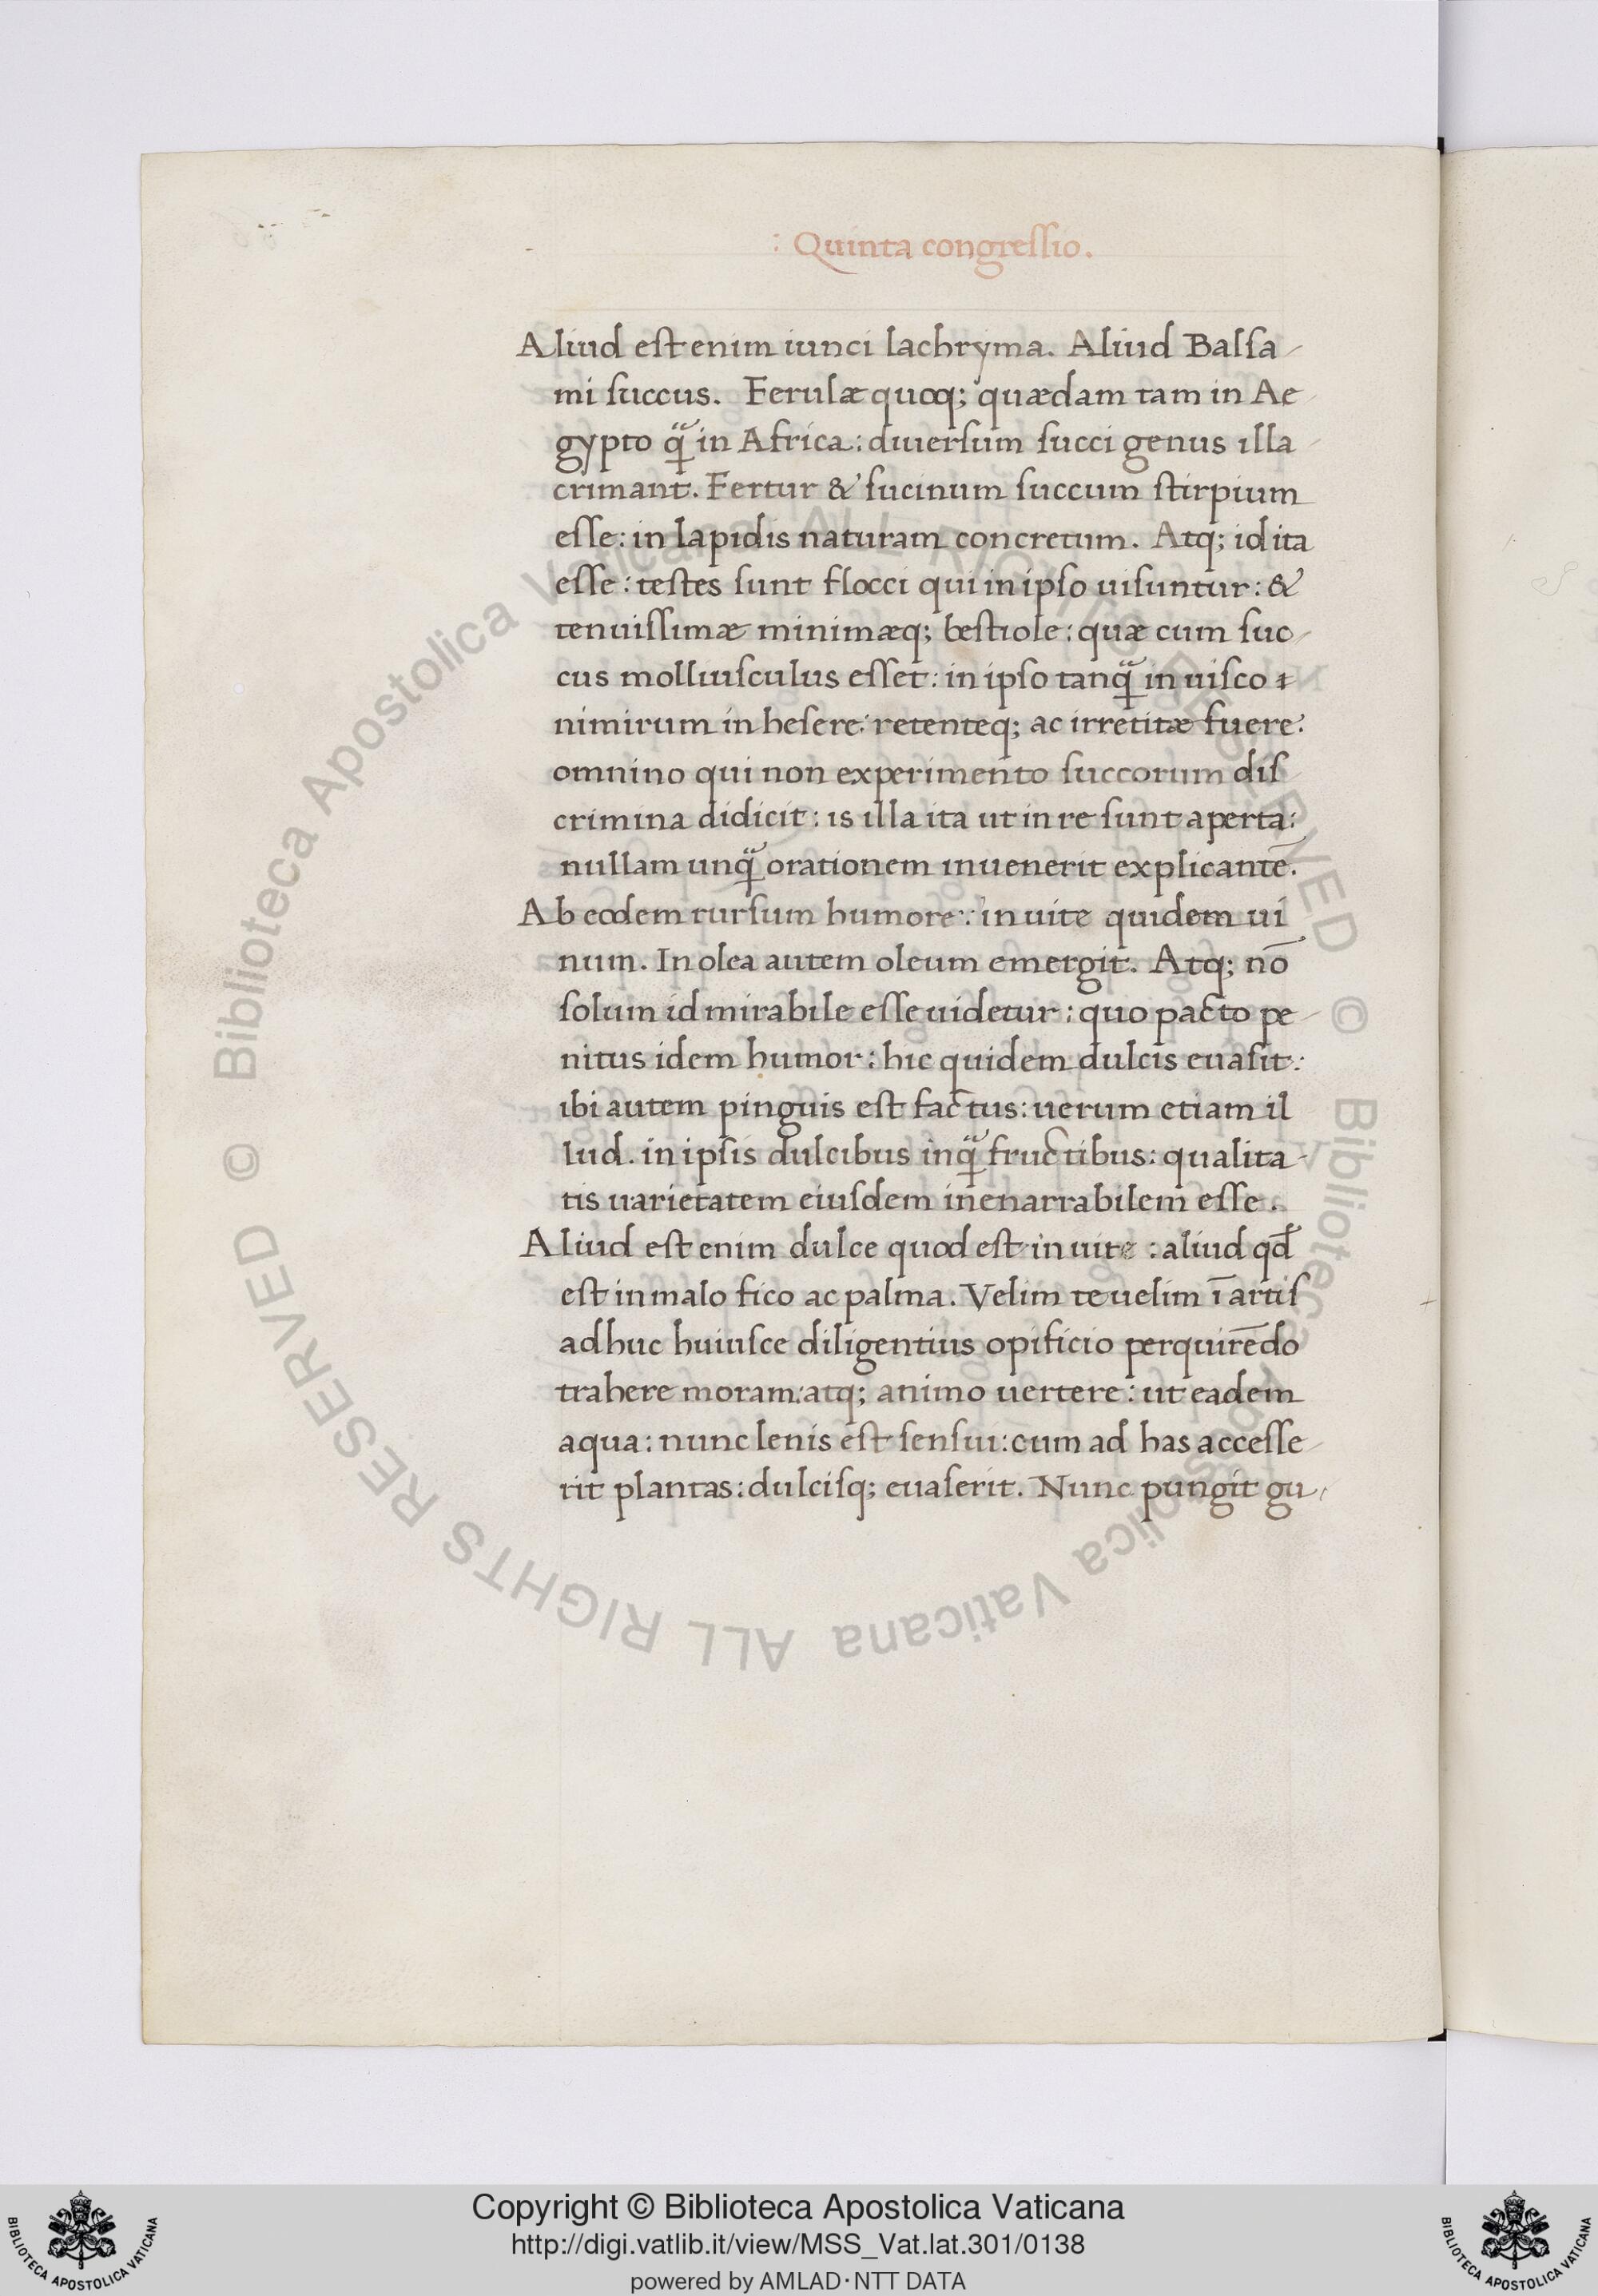 : Quinta congreſſio.
Aliud eſt enim iunci lachryma. Aliud Balſa-
mi ſuccus. Ferulæ quoq; quædam tam in Ae-
gypto q̃ in Africa: diuerſum ſucci genus illa-
crimant. Fertur & ſucinum ſuccum ſtirpium
eſſe: in lapidis naturam concretum. Atq; id ita
eſſe: teſtes ſunt flocci qui in ipſo uiſuntur: &
tenuiſſimæ minimæq; beſtiole: quæ cum ſuc-
cus molliuſculus eſſet: in ipſo tanq̃ in uiſco
nimirum in heſere: retenteq; ac irretitæ fuere:
omnino qui non experimento ſuccorum diſ-
crimina didicit: is illa ita ut in re ſunt aperta:
nullam unq̃ orationem inuenerit explicantē.
Ab eodem rurſum humore: in uite quidem ui
num. In olea autem oleum emergit. Atq; nō
ſolum id mirabile eſſe uidetur: quo pacto pe-
nitus idem humor: hic quidem dulcis euaſit:
ibi autem pinguis eſt factus: uerum etiam il
lud. in ipſis dulcibus inq̃ fructibus: qualita-
tis uarietatem eiuſdem inenarrabilem eſſe.
Aliud eſt enim dulce quod eſt in uite: aliud qd̄
eſt in malo fico ac palma. Velim te uelim ī artiſ
adhuc huiuſce diligentius opificio perquirēdo
trahere moram: atq; animo uertere: ut eadem
aqua: nunc lenis eſt ſenſui: cum ad has acceſſe-
rit plantas: dulciſq; euaſerit. Nunc pungit gu-
© Biblioteca Apostolica Vaticana ALL RIGHTS RESERVED
© Biblioteca Apostolica Vaticana ALL RIGHTS RESERVED
Copyright © Biblioteca Apostolica Vaticana
http://digi.vatlib.it/view/MSS_Vat.lat.301/0138
powered by AMLAD·NTT DATA
BIBLIOTECA APOSTOLICA VATICANA
BIBLIOTECA APOSTOLICA VATICANA